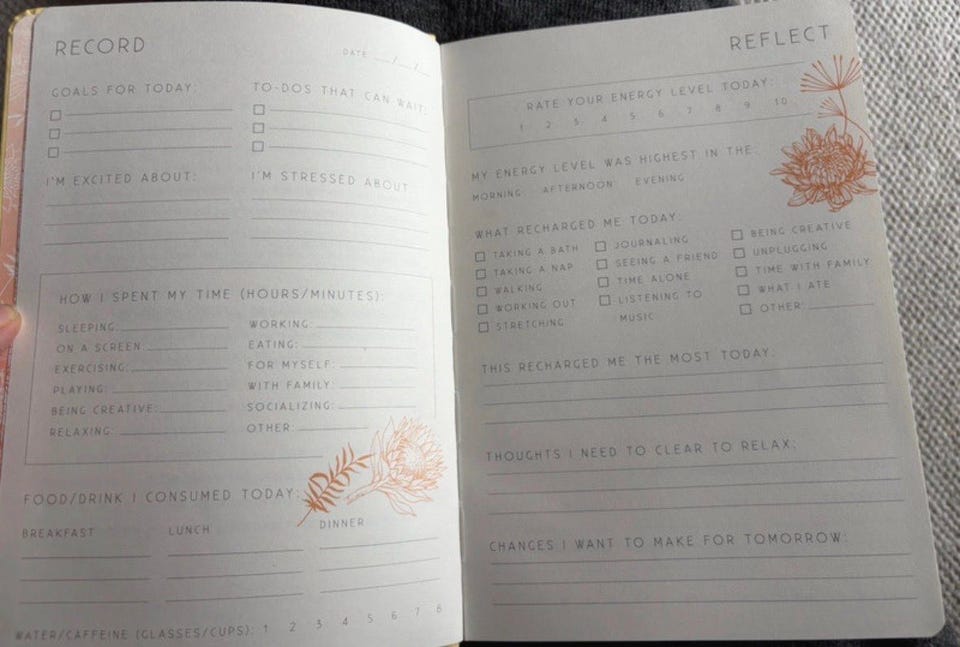 RECORD
DATE __/__/__
GOALS FOR TODAY:
TO-DOS THAT CAN WAIT:
I'M EXCITED ABOUT:
I'M STRESSED ABOUT
HOW I SPENT MY TIME (HOURS/MINUTES):
SLEEPING:
ON A SCREEN
EXERCISING:
PLAYING:
BEING CREATIVE:
RELAXING:
WORKING:
EATING:
FOR MYSELF:
WITH FAMILY:
SOCIALIZING:
OTHER:
FOOD/DRINK I CONSUMED TODAY:
BREAKFAST
LUNCH
DINNER
WATER/CAFFEINE (GLASSES/CUPS): 1 2 3 4 5 6 7 8
REFLECT
RATE YOUR ENERGY LEVEL TODAY:
1 2 3 4 5 6 7 8 9 10
MY ENERGY LEVEL WAS HIGHEST IN THE:
MORNING AFTERNOON EVENING
WHAT RECHARGED ME TODAY:
TAKING A BATH
TAKING A NAP
WALKING
WORKING OUT
STRETCHING
JOURNALING
SEEING A FRIEND
TIME ALONE
LISTENING TO
MUSIC
BEING CREATIVE
UNPLUGGING
TIME WITH FAMILY
WHAT I ATE
OTHER:
THIS RECHARGED ME THE MOST TODAY:
THOUGHTS I NEED TO CLEAR TO RELAX:
CHANGES I WANT TO MAKE FOR TOMORROW: